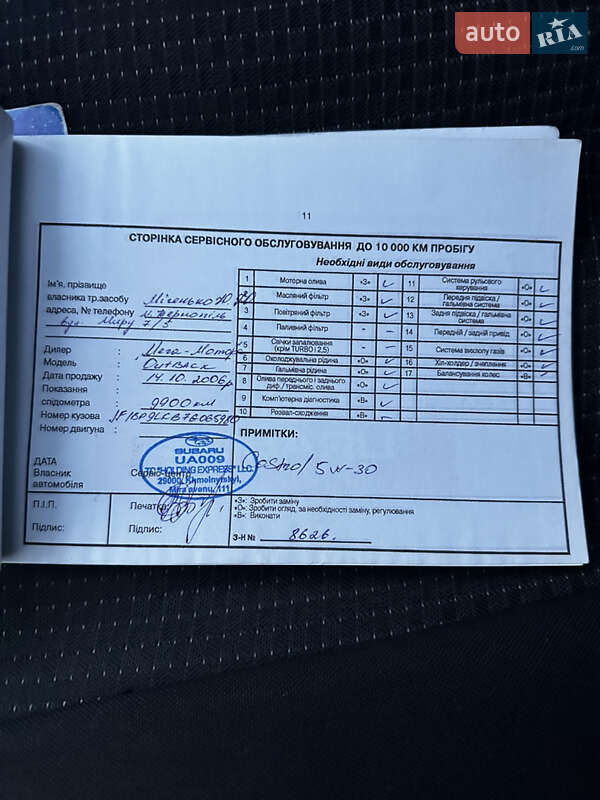 auto RIA .com
11
СТОРІНКА СЕРВІСНОГО ОБСЛУГОВУВАННЯ ДО 10 000 КМ ПРОБІГУ
Необхідні види обслуговування
Ім'я, прізвище
власника тр.засобу
адреса, № телефону м. Тернопіль
вул. Миру 7/5
Дилер : Мега-Мотор
Модель : Outback
Дата продажу : 14.10.2006р
Показання
спідометра : 9900 км
Номер кузова :
Номер двигуна :
1 Моторна олива «З» ✓
2 Масляний фільтр «З» ✓
3 Повітряний фільтр «З» ✓
4 Паливний фільтр – –
5 Свічки запалювання (крім TURBO і 2,5) – –
6 Охолоджувальна рідина «О» ✓
7 Гальмівна рідина «О» ✓
8 Олива переднього і заднього диф./трансміс. олива «О» ✓
9 Комп'ютерна діагностика «В» ✓
10 Розвал-сходження «В»
11 Система рульового керування «О» ✓
12 Передня підвіска / гальмівна система «О» ✓
13 Задня підвіска / гальмівна система «О» ✓
14 Передній / задній привід «О» ✓
15 Система вихлопу газів «О» ✓
16 Хіл-холдер / зчеплення «О» ✓
17 Балансування колес «В» ✓
ПРИМІТКИ:
Castrol 5W-30
ДАТА
Власник
автомобіля
Сервіс-центр
SUBARU
UA009
TC "HOLDING EXPRESS" LLC
29000, Khmelnytskyi,
Mira avenu, 111
П.І.П.
Підпис:
Печатка:
Підпис:
«З»: Зробити заміну
«О»: Зробити огляд, за необхідності заміну, регулювання
«В»: Виконати
З-Н № 8626.